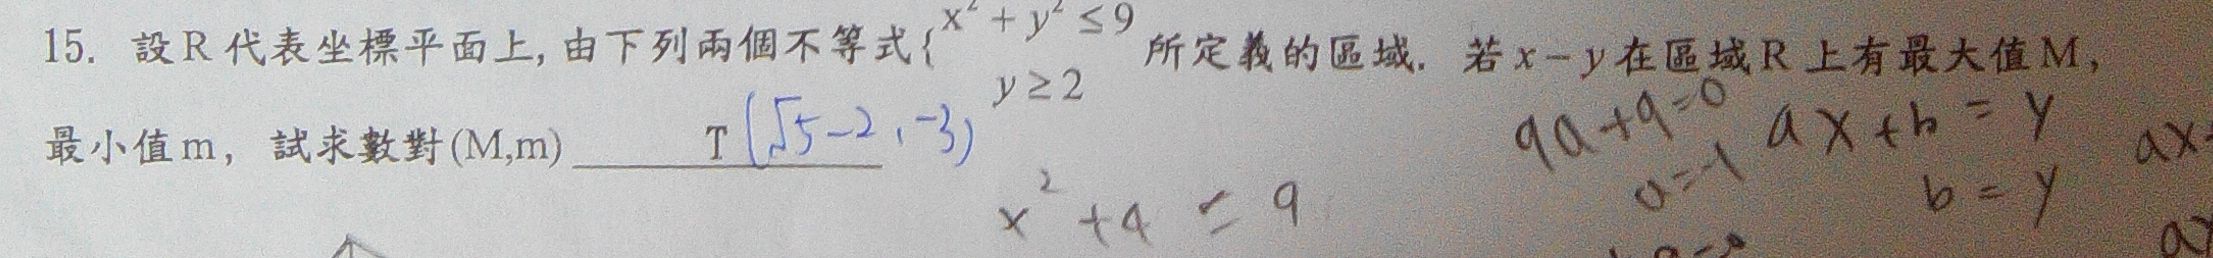 15. 設R代表坐標平面上,由下列兩個不等式{x²+y²≤9 y≥2 所定義的區域. 若x-y在區域R上有最大值M,
最小值m, 試求數對(M,m) T (√5-2,-3)
x²+4≤9
9a+9=0
a=-1
ax+b=y
b=y
ax